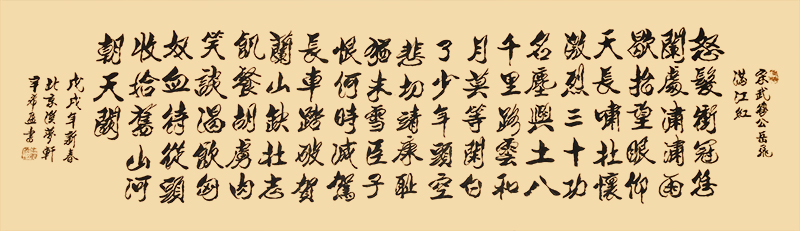 宋武穆公岳飛
滿江紅
怒髮衝冠凭
闌處瀟瀟雨
歇抬望眼仰
天長嘯壯懷
激烈三十功
名塵與土八
千里路雲和
月莫等閑白
了少年頭空
悲切靖康耻
猶未雪臣子
恨何時滅駕
長車踏破賀
蘭山缺壯志
飢餐胡虜肉
笑談渴飲匈
奴血待從頭
收拾舊山河
朝天闕
戊戌年新春
北京漢夢軒
辛希孟書